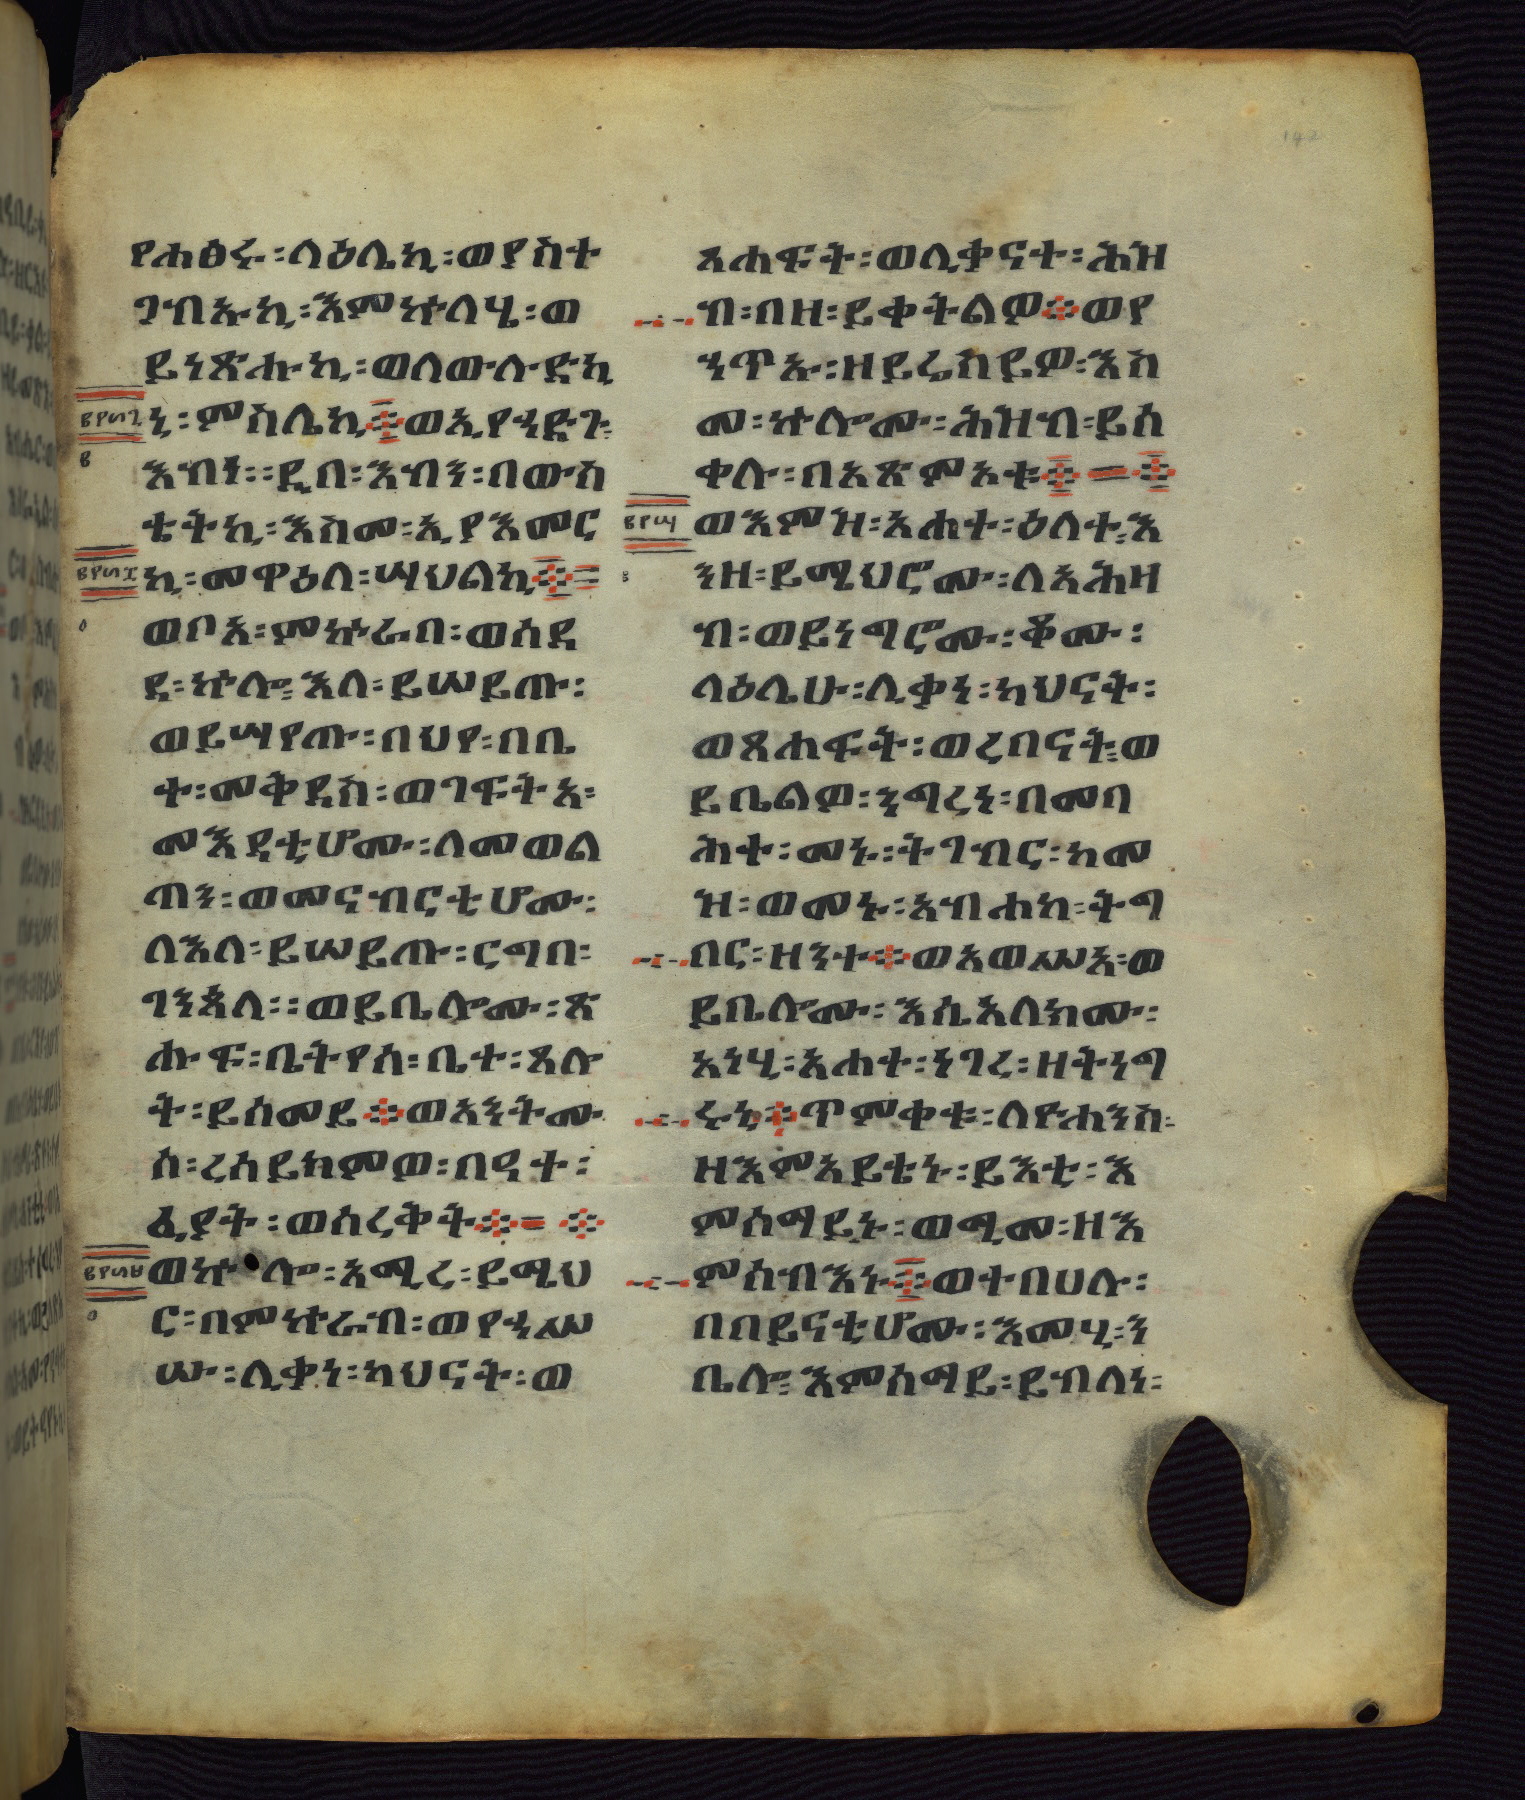 የሐፅሩ፡ላዕሌኪ፡ወያስተ
ጋብኡኪ፡እምኵለሄ፡ወ
ይነጽሑኪ፡ወለውሉድኪ
ኒ፡ምስሌኪ፨ወኢየኀድጉ፡
እብነ፡፡ዲበ፡እብን፡በውስ
ቴትኪ፡እስመ፡ኢያእመር
ኪ፡መዋዕለ፡ሣህልኪ፨
ወቦአ፡ምኵራበ፡ወሰደ
ደ፡ኵሎ፡እለ፡ይሠይጡ፡
ወይሣየጡ፡በህየ፡በቤ
ተ፡መቅደስ፡ወገፍትአ፡
መእዳቲሆሙ፡ለመወል
ጣን፡ወመናብርቲሆሙ፡
ለእለ፡ይሠይጡ፡ርግበ፡
ገንጰለ፡፡ወይቤሎሙ፡ጽ
ሑፍ፡ቤትየሰ፡ቤተ፡ጸሎ
ት፡ይሰመይ፨ወአንትሙ
ሰ፡ረሰይክምወ፡በዓተ፡
ፈያት፡ወሰረቅት፨፨
ወኵሎ፡አሚረ፡ይሜህ
ር፡በምኵራብ፡ወየኀሡ
ሡ፡ሊቃነ፡ካህናት፡ወ
ጸሐፍት፡ወሊቃናተ፡ሕዝ
ብ፡በዘ፡ይቀትልዎ፨ወየ
ኀጥኡ፡ዘይሬስይዎ፡እስ
መ፡ኵሎሙ፡ሕዝብ፡ይሰ
ቀሉ፡በአጽምኦቱ፨፨
ወእምዝ፡አሐተ፡ዕለተ፡እ
ንዘ፡ይሜህሮሙ፡ለአሕዛ
ብ፡ወይነግሮሙ፡ቆሙ፡
ላዕሌሁ፡ሊቃነ፡ካህናት፡
ወጸሐፍት፡ወረበናት፡ወ
ይቤልዎ፡ንግረነ፡በመባ
ሕተ፡መኑ፡ትገብር፡ከመ
ዝ፡ወመኑ፡አብሐከ፡ትግ
በር፡ዘንተ፨ወአወሥአ፡ወ
ይቤሎሙ፡እሴአለክሙ፡
አነሂ፡አሐተ፡ነገረ፡ዘትነግ
ሩኒ፨ጥምቀቱ፡ለዮሐንስ፡
ዘእምአይቴኑ፡ይእቲ፡እ
ምሰማይኑ፡ወሚመ፡ዘእ
ምሰብእኑ፨ወተበሀሉ፡
በበይናቲሆሙ፡እመሂ፡ን
ቤሎ፡እምሰማይ፡ይብለነ፡